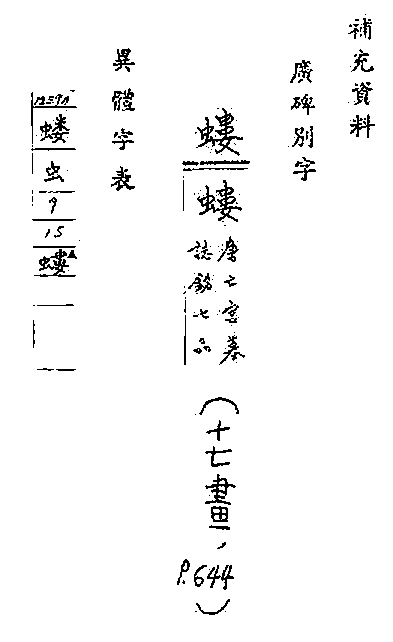 補充資料
廣碑別字
螻
螻
唐亡宮墓
誌銘七品
(十七畫,
P.644)
異體字表
蝼
虫
9
15
螻